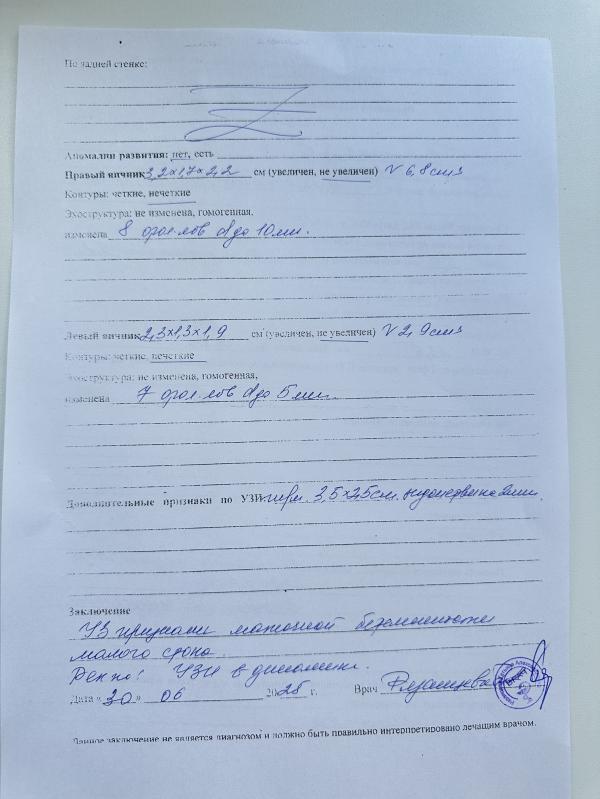 По задней стенке:
Аномалии развития: нет, есть
Правый яичник 3,2×1,7×2,2 см (увеличен, не увеличен) V 6,8 cm3
Контуры: четкие, нечеткие
Эхоструктура: не изменена, гомогенная,
изменена 8 фол-лов d до 10 мм.
Левый яичник 2,3×1,3×1,9 см (увеличен, не увеличен) V 2,9 cm3
Контуры: четкие, нечеткие
Эхоструктура: не изменена, гомогенная,
изменена 7 фол-лов d до 5 мм.
Дополнительные признаки по УЗИ: 3,5×2,5 см.
Заключение
УЗ признаки маточной беременности
малого срока.
УЗИ в динамике.
Дата «30» 06 2025 г. Врач
Данное заключение не является диагнозом и должно быть правильно интерпретировано лечащим врачом.